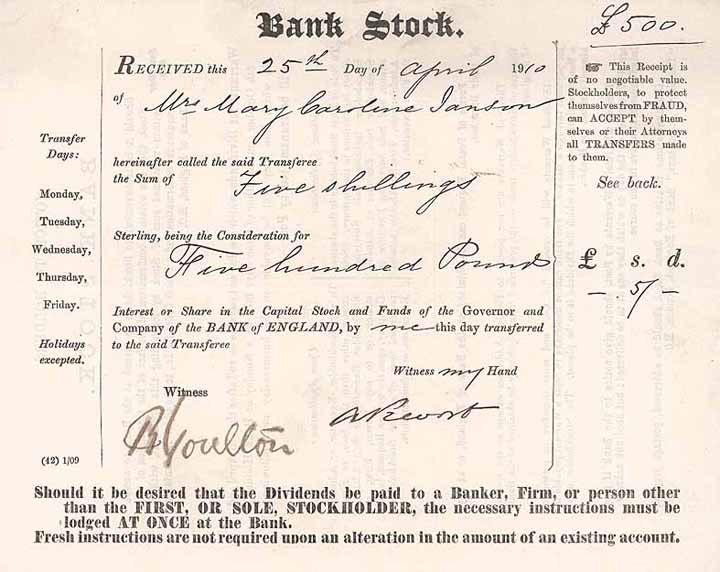 Bank Stock.
£500.
RECEIVED this 25th Day of April 1910
of Mrs Mary Caroline Janson
hereinafter called the said Transferee
the Sum of Five shillings
Sterling, being the Consideration for
Five hundred Pounds
Interest or Share in the Capital Stock and Funds of the Governor and
Company of the BANK of ENGLAND, by me this day transferred
to the said Transferee
Witness my Hand
Witness
Transfer
Days:
Monday,
Tuesday,
Wednesday,
Thursday,
Friday.
Holidays
excepted.
(42) 1/09
☞ This Receipt is
of no negotiable value.
Stockholders, to protect
themselves from FRAUD,
can ACCEPT by them-
selves or their Attorneys
all TRANSFERS made
to them.
See back.
£ s. d.
— 5/ —
Should it be desired that the Dividends be paid to a Banker, Firm, or person other
than the FIRST, OR SOLE, STOCKHOLDER, the necessary instructions must be
lodged AT ONCE at the Bank.
Fresh instructions are not required upon an alteration in the amount of an existing account.